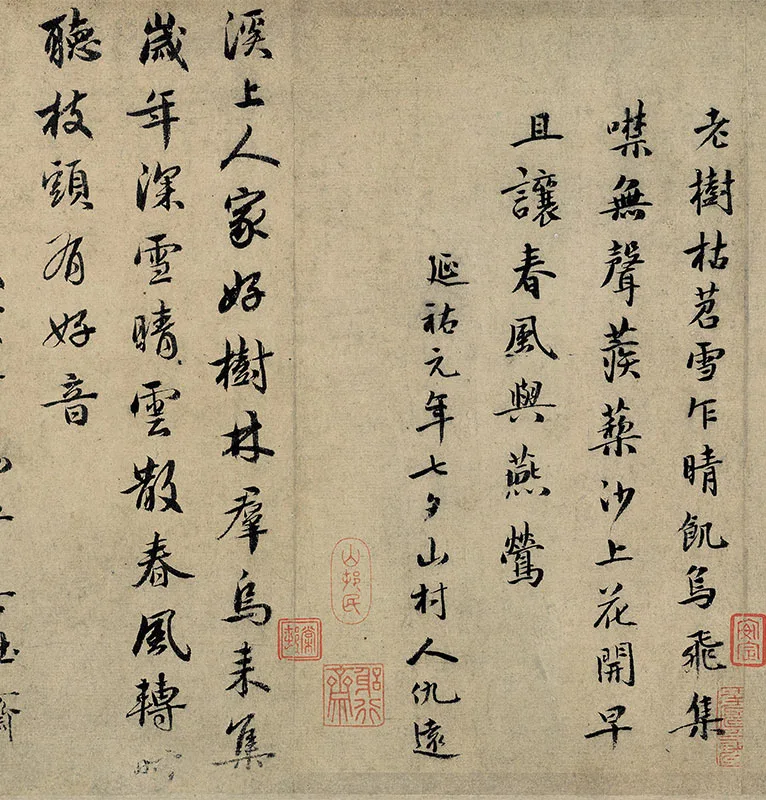 老樹枯苕雪乍晴飢烏飛集
噤無聲蒺蔾沙上花開早
且讓春風與燕鶯
延祐元年七夕山村人仇遠
山邨氏
溪上人家好樹林羣烏来集
歲年深雪晴雲散春風轉
聽枝頭有好音